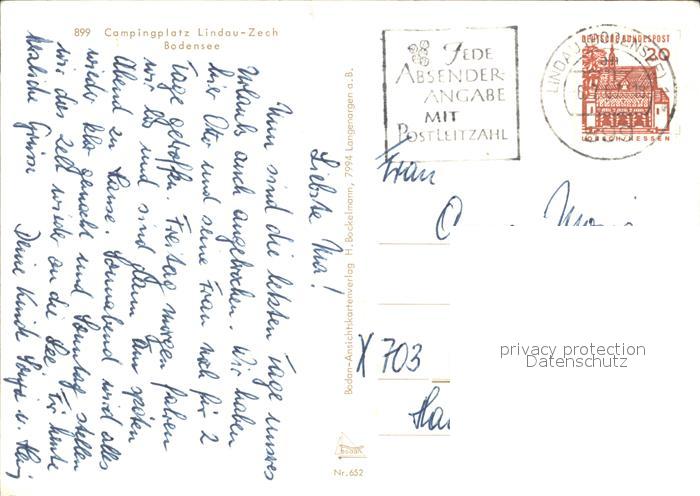 899 Campingplatz Lindau-Zech
Bodensee
JEDE
ABSENDER-
ANGABE
MIT
POSTLEITZAHL
LINDAU (BODENSEE)
DEUTSCHE BUNDESPOST
20
LORSCH/HESSEN
Liebste Ma!
Nun sind die letzten Tage unseres
Urlaubs auch angebrochen. Wir haben
hier Otto und seine Frau noch für 2
Tage getroffen. Freitag morgen fahren
wir los und sind dann am späten
Abend zu Hause. Sonnabend wird alles
wieder klar gemacht und Sonntag stellen
wir das Zelt wieder an die See. Für heute
herzliche Grüsse Deine Kinder
Bodan-Ansichtskartenverlag H. Bockelmann, 7994 Langenargen a. B.
Frau
X 703
bodan
Nr. 652
privacy protection
Datenschutz